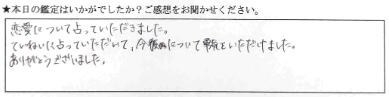 ★本日の鑑定はいかがでしたか？ご感想をお聞かせください。
恋愛について占っていただきました。
ていねいに占っていただいて、今後についていただけました。
ありがとうございました。